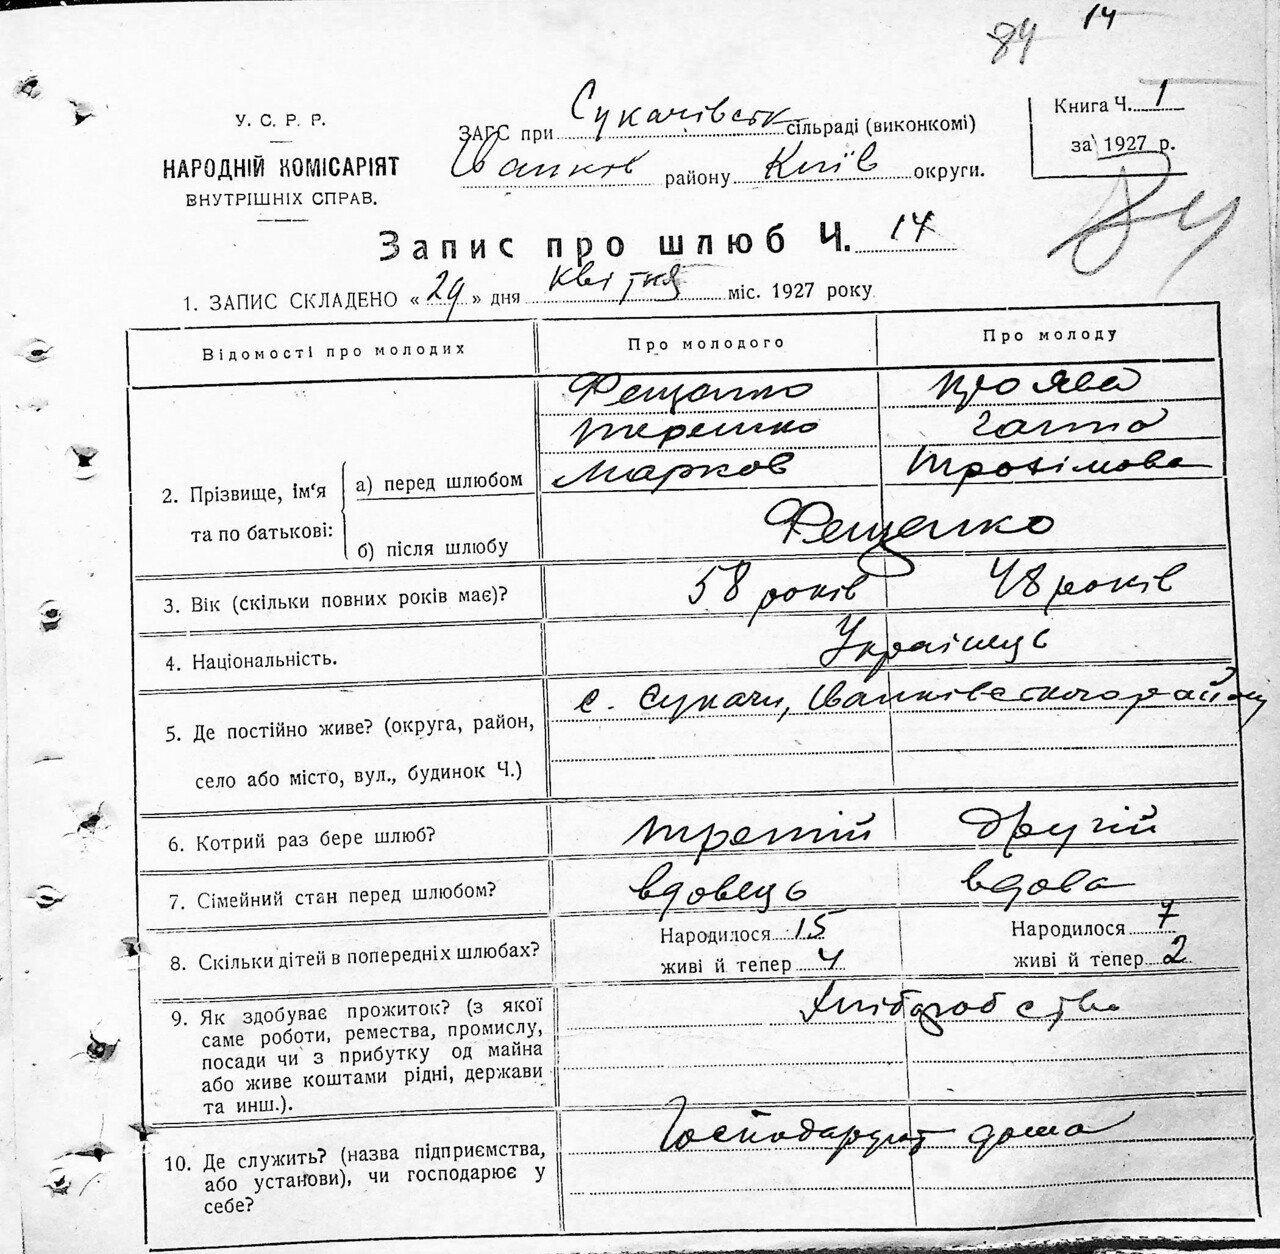 84 14
У. С. Р. Р.
НАРОДНІЙ КОМІСАРІЯТ
ВНУТРІШНІХ СПРАВ.
ЗАГС при Сукачівськ сільраді (виконкомі)
Іванків району Київ округи.
Книга Ч. 1
за 1927 р.
84
Запис про шлюб Ч. 14
1. ЗАПИС СКЛАДЕНО « 29 » дня квітня міс. 1927 року
Відомості про молодих Про молодого Про молоду
Фещенко Проява
Терешко Ганна
Марков Трохімова
2. Прізвище, ім'я та по батькові:
а) перед шлюбом
б) після шлюбу
Фещенко
3. Вік (скільки повних років має)? 58 років 48 років
4. Національність. Українець
5. Де постійно живе? (округа, район,
село або місто, вул., будинок Ч.)
с. Сукачи, Іванківського району
6. Котрий раз бере шлюб? третій другій
7. Сімейний стан перед шлюбом? вдовець вдова
8. Скільки дітей в попередніх шлюбах?
Народилося 15 Народилося 7
живі й тепер 4 живі й тепер 2
9. Як здобуває прожиток? (з якої
саме роботи, ремества, промислу,
посади чи з прибутку од майна
або живе коштами рідні, держави
та инш.).
Хліборобство
10. Де служить? (назва підприємства,
або установи), чи господарює у
себе?
Господарують дома